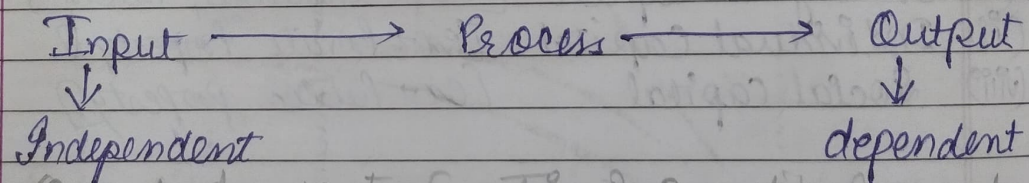 Input → Process → Output
↓ ↓
Independent dependent